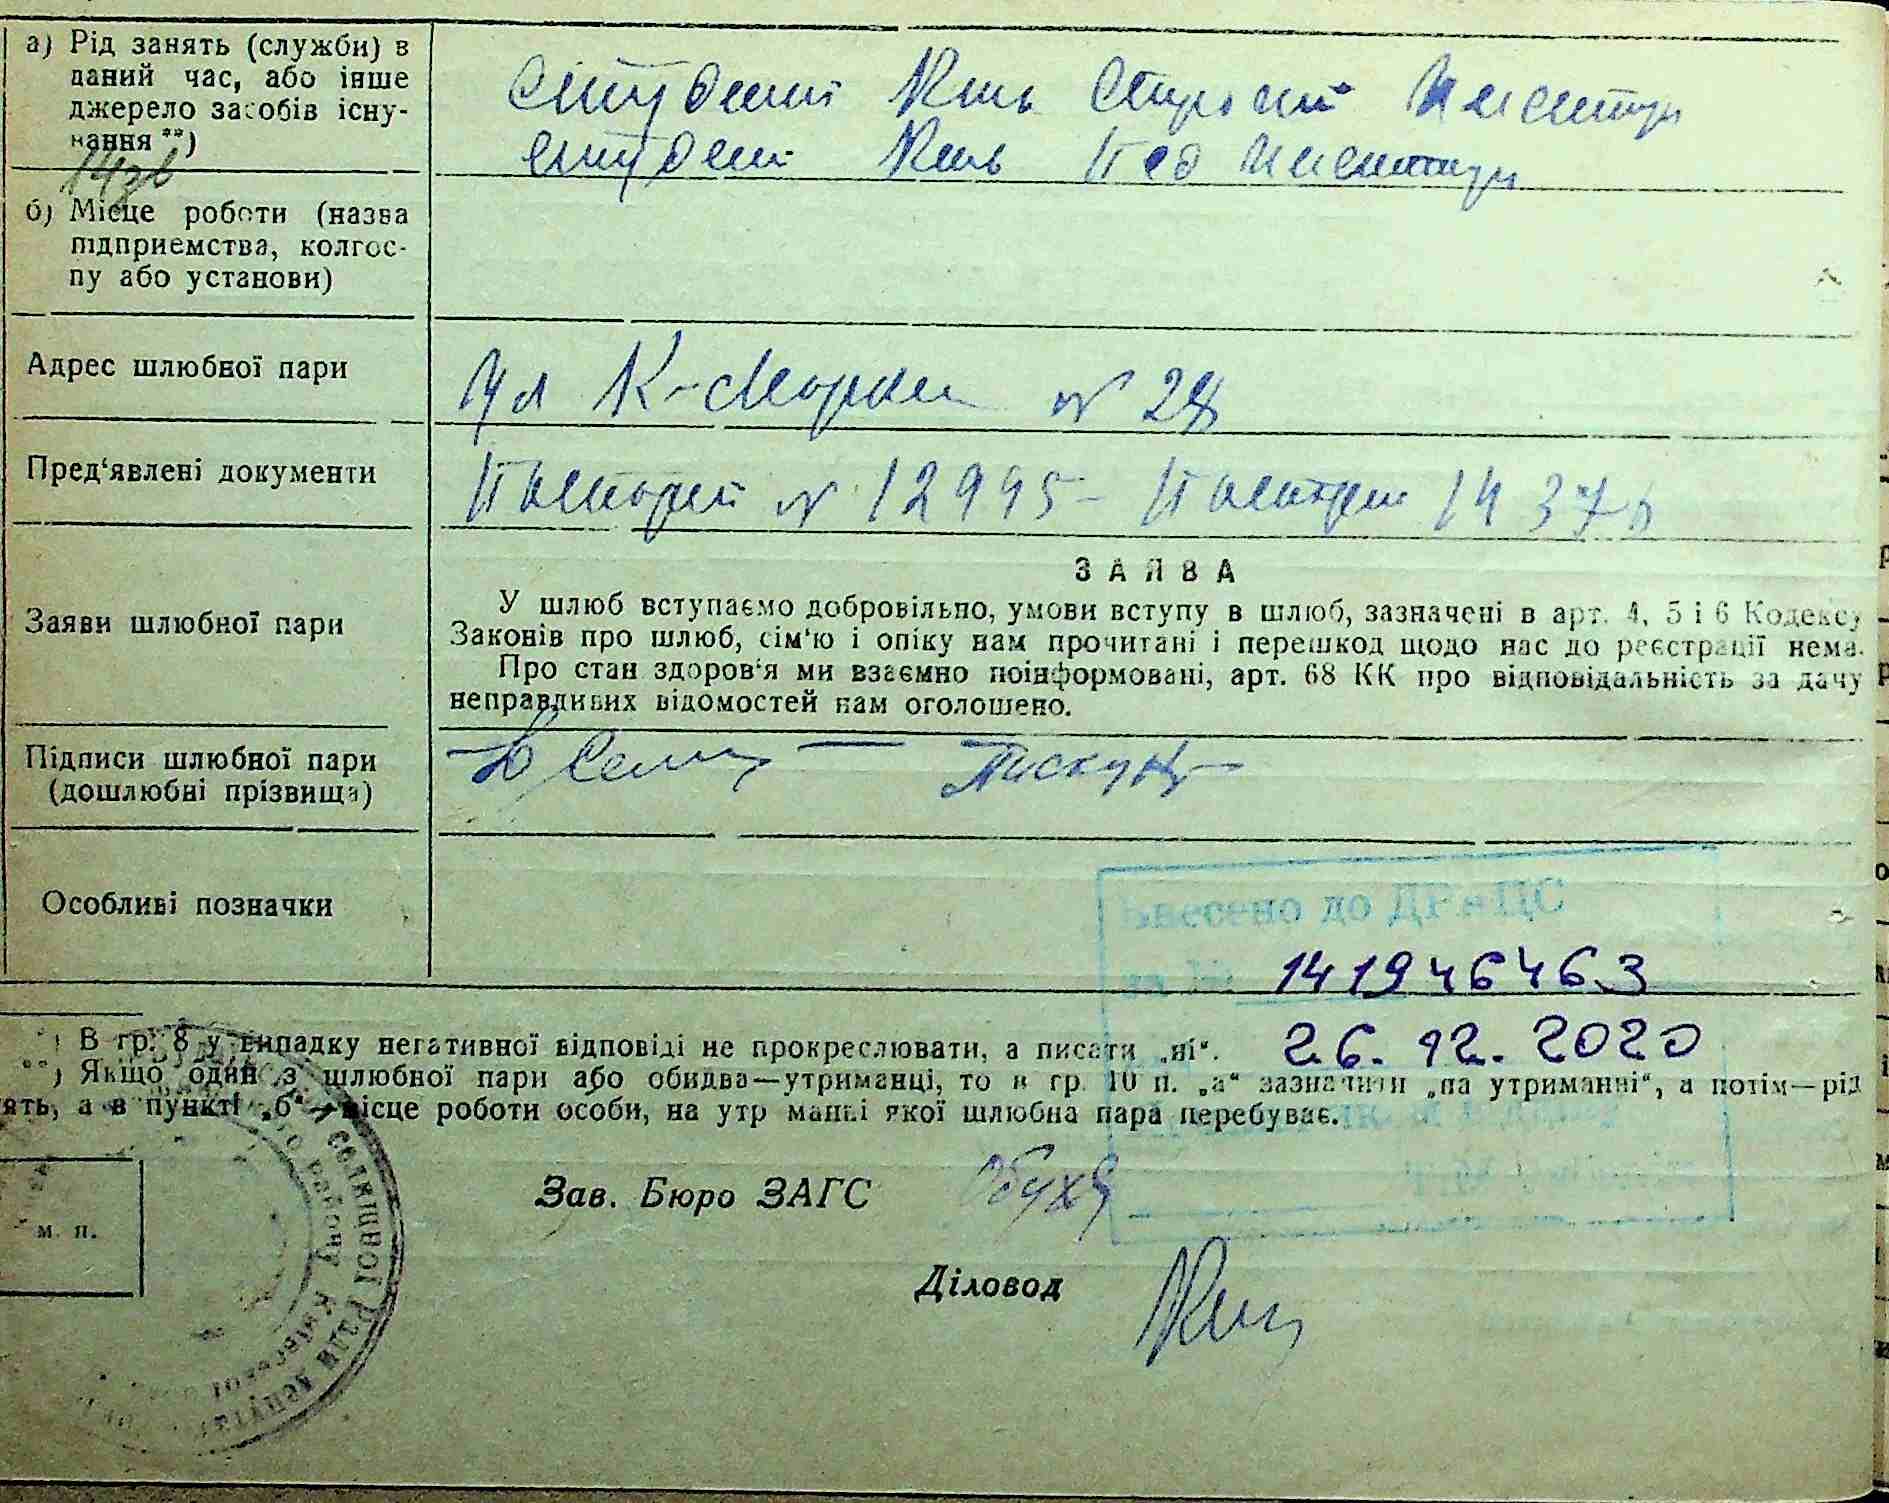 а) Рід занять (служби) в
даний час, або інше
джерело засобів існу-
вання **)
студент Київ Инситут
студент Київ Пед Инситут
б) Місце роботи (назва
підприємства, колгос-
пу або установи)
Адрес шлюбної пари
ул К-Маркса № 28
Пред'явлені документи
Паспорт № 12995 - Паспорт 14376
Заяви шлюбної пари
ЗАЯВА
У шлюб вступаємо добровільно, умови вступу в шлюб, зазначені в арт. 4, 5 і 6 Кодексу
Законів про шлюб, сім'ю і опіку нам прочитані і перешкод щодо нас до реєстрації нема.
Про стан здоров'я ми взаємно поінформовані, арт. 68 КК про відповідальність за дачу
неправдивих відомостей нам оголошено.
Підписи шлюбної пари
(дошлюбні прізвища)
Пискун
Особливі позначки
Внесено до ДРАЦС
за № 141946463
26.12.2020
*) В гр. 8 у випадку негативної відповіді не прокреслювати, а писати „ні".
**) Якщо один з шлюбної пари або обидва—утриманці, то в гр. 10 п. „а" зазначити „на утриманні", а потім—рід
ять, а в пункті „б"—місце роботи особи, на утриманні якої шлюбна пара перебуває.
Зав. Бюро ЗАГС
м. п.
Діловод